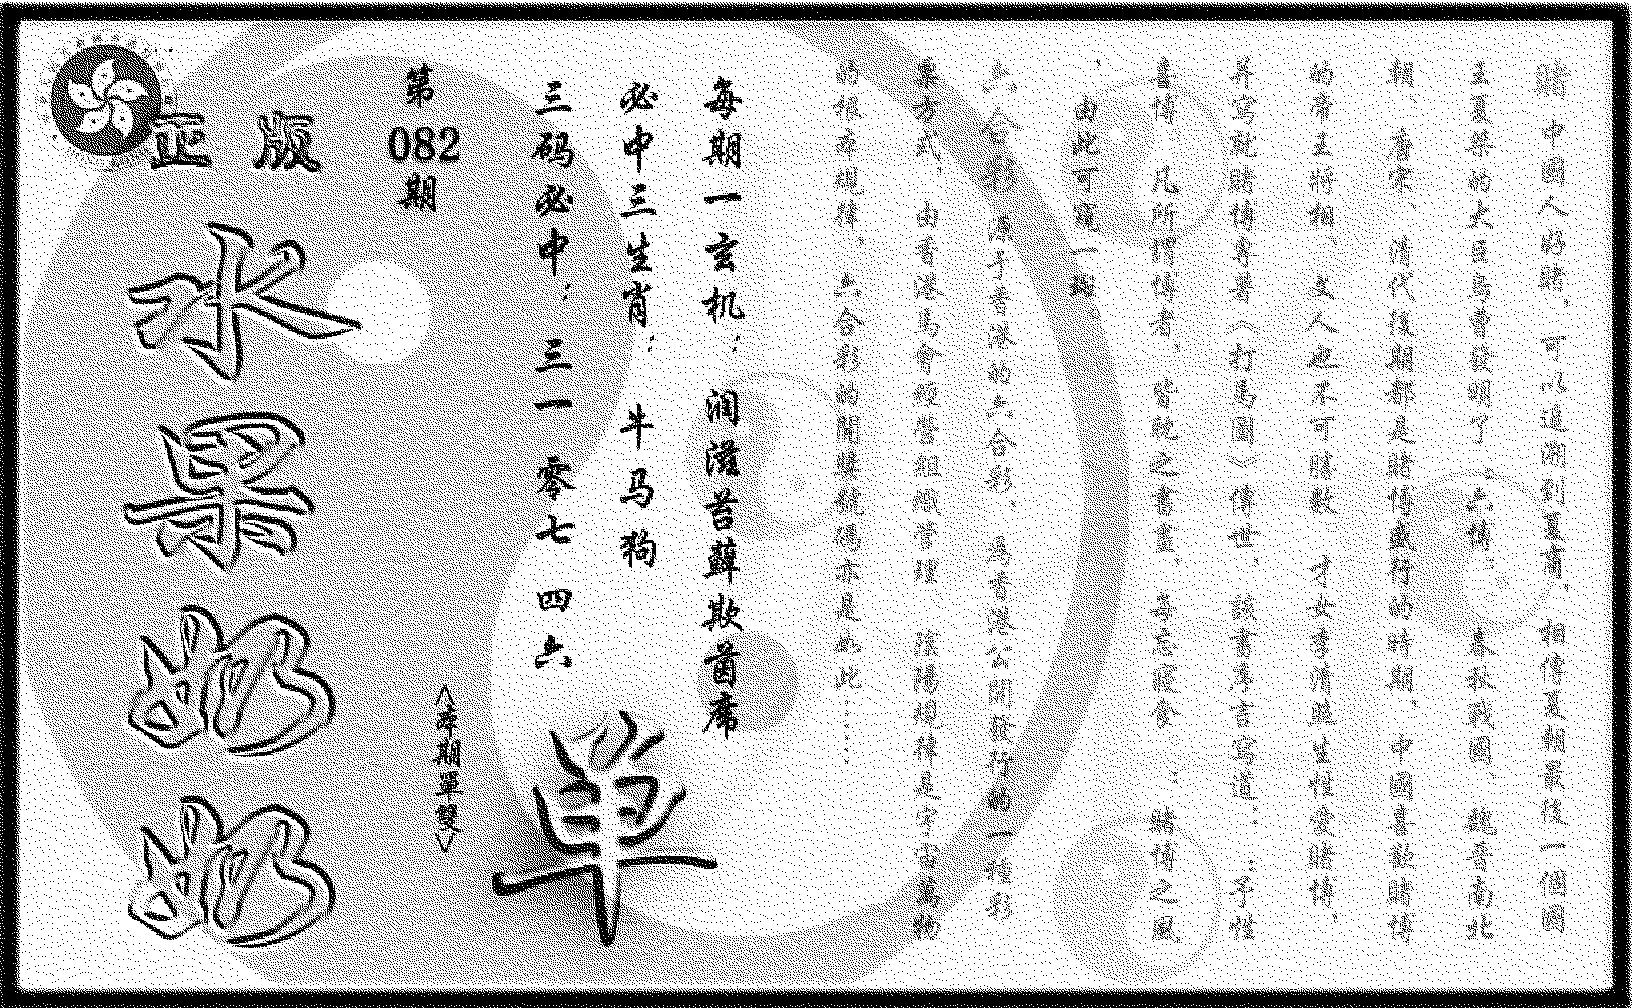 賭，中國人好賭，可以追溯到夏商，相傳夏朝最後一個國
王夏桀的大臣烏曹發明了“六博”。春秋戰國、魏晉南北
朝、唐宋、清代後期都是賭博盛行的時期。中國喜歡賭博
的帝王將相、文人也不可勝數，才女李清照生性愛賭博，
并寫就賭博專著《打馬圖》傳世，該書序言寫道：“予性
喜博，凡所謂博者，皆耽之書畫，每忘寢食”。賭博之風
，由此可窺一斑
六合彩，源于香港的六合彩，是香港公開發行的一種彩
票方式，由香港馬會經營組織管理。陰陽規律是宇宙萬物
的根本規律，六合彩的開獎號碼亦是如此......
每期一玄机：润滋苔藓欺茵席
必中三生肖：牛马狗
三码必中：三一 零七 四六
单
第082期
<本期單雙>
正版
水果奶奶